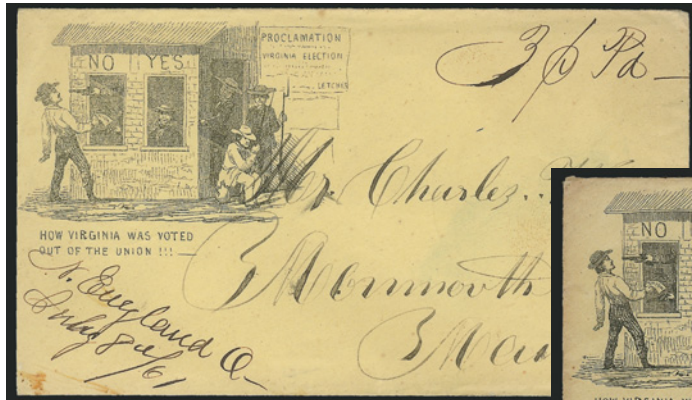 NO YES
PROCLAMATION
VIRGINIA ELECTION
LETCHER
HOW VIRGINIA WAS VOTED
OUT OF THE UNION !!!
3 Pd
Mr. Charles
Monmouth
N. England O
July 8th /61
NO